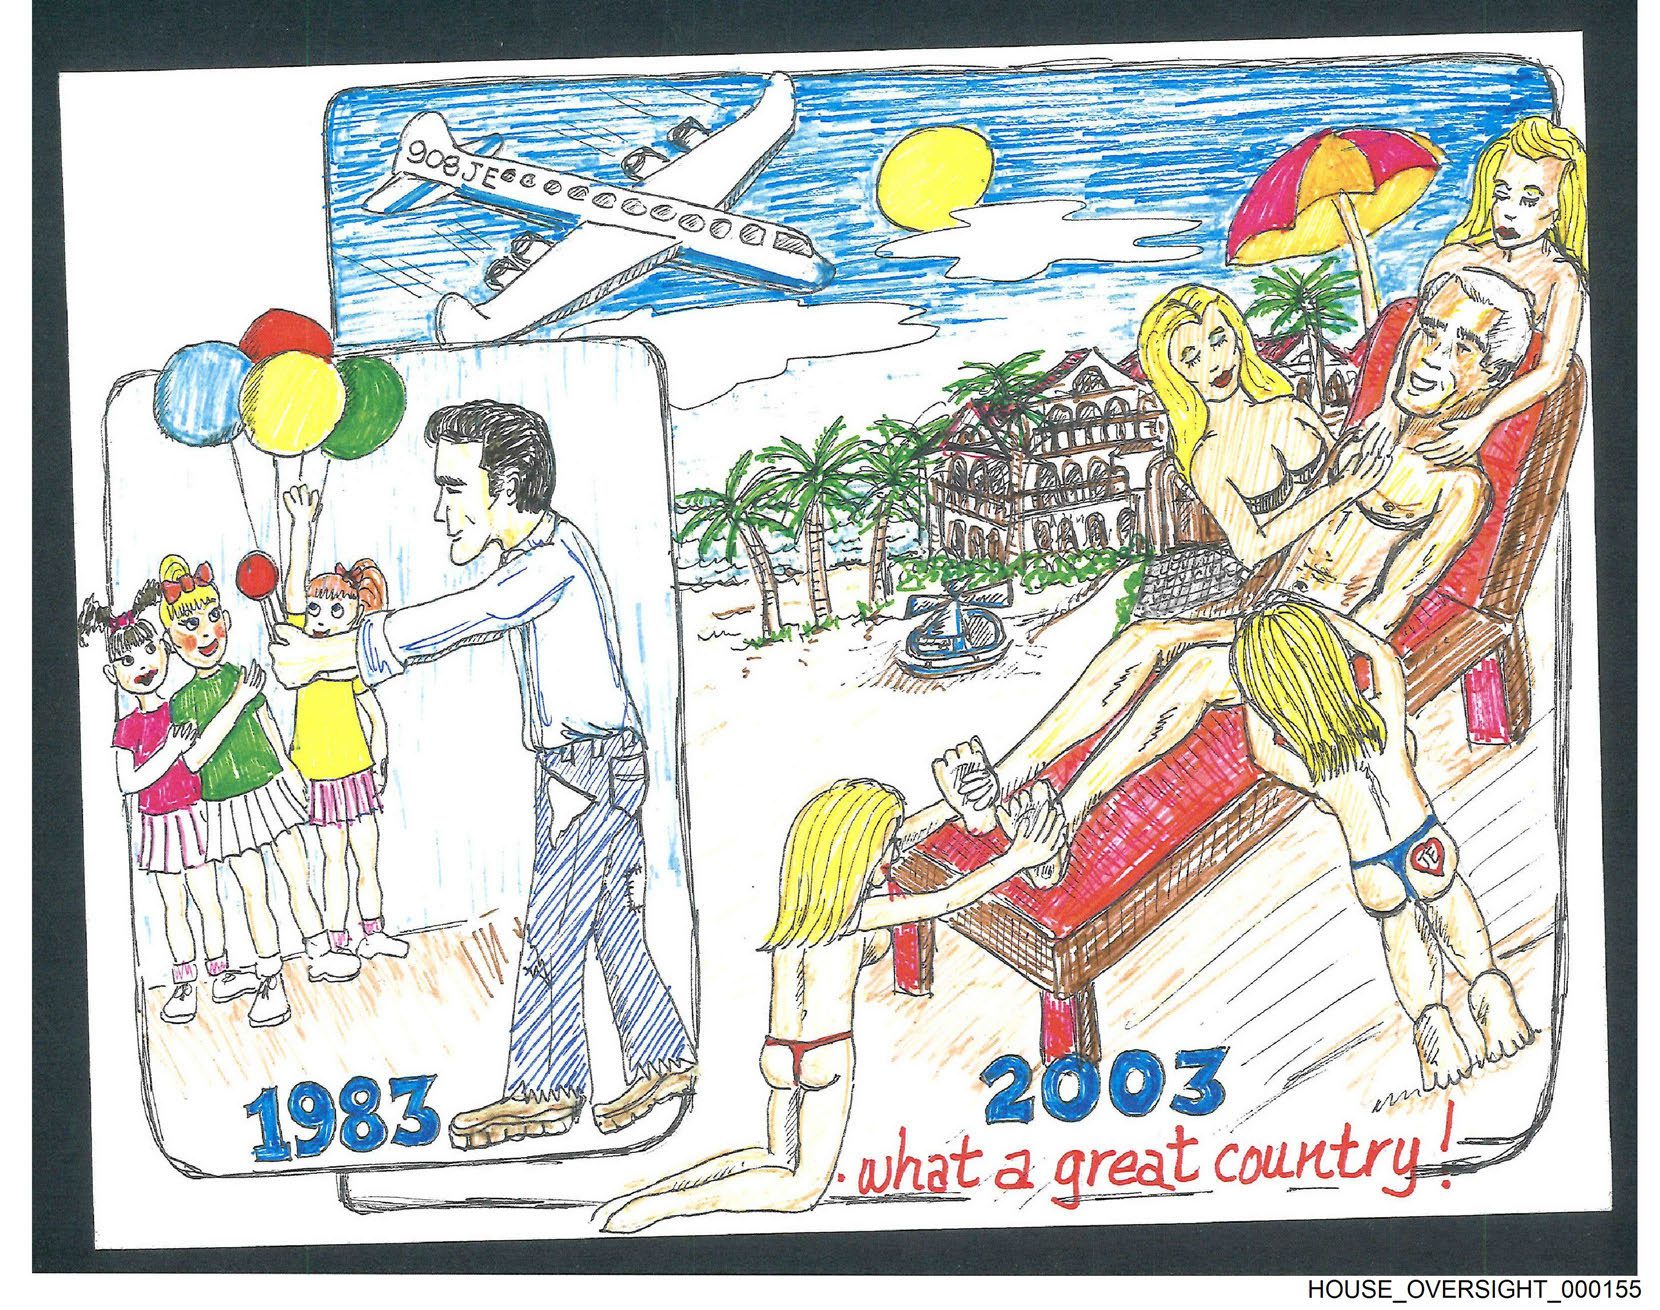 908JE
JE
1983
2003
.what a great country!
HOUSE_OVERSIGHT_000155